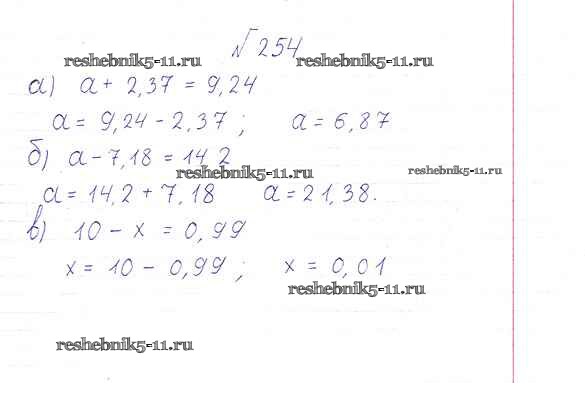 № 254
reshebnik5-11.ru reshebnik5-11.ru
а) a + 2,37 = 9,24
a = 9,24 - 2,37 ; a = 6,87
б) a - 7,18 = 14,2
reshebnik5-11.ru reshebnik5-11.ru
a = 14,2 + 7,18 a = 21,38.
в) 10 - x = 0,99
x = 10 - 0,99 ; x = 0,01
reshebnik5-11.ru
reshebnik5-11.ru